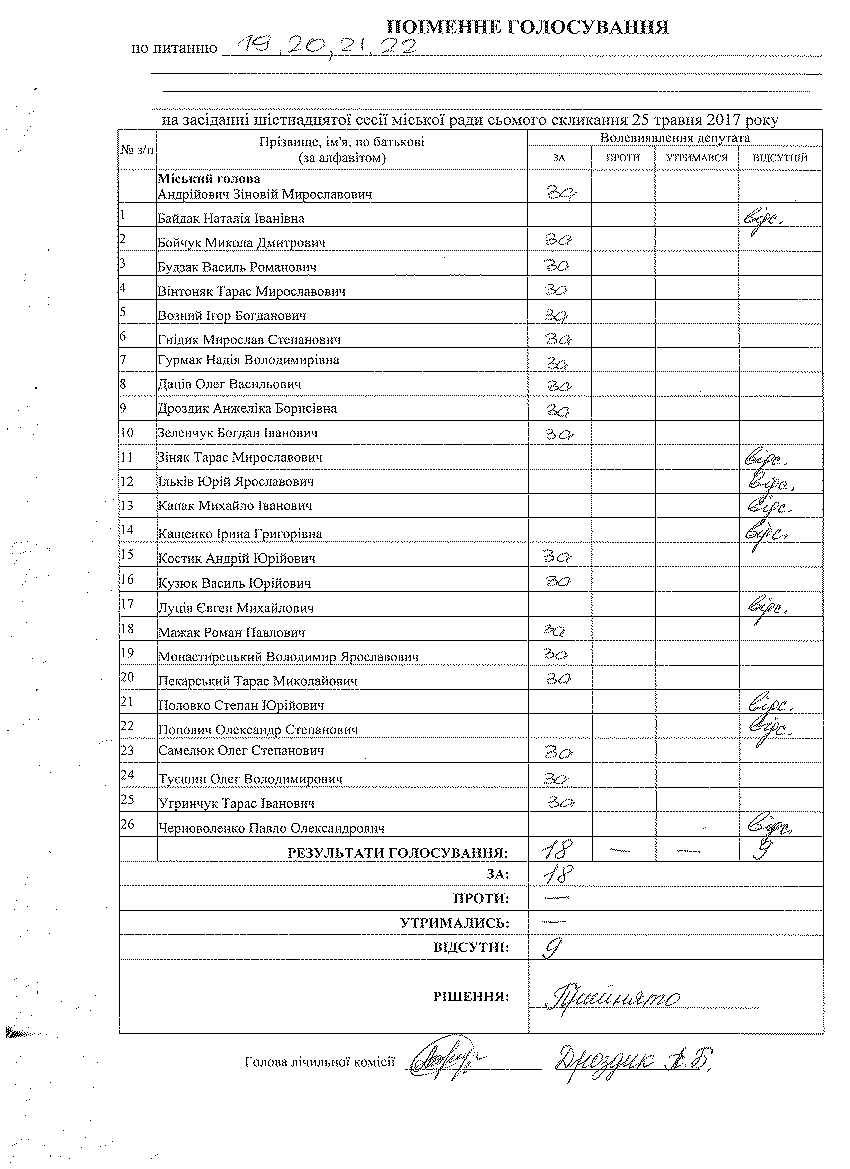 ПОІМЕННЕ ГОЛОСУВАННЯ
по питанню 19, 20, 21, 22
на засіданні шістнадцятої сесії міської ради сьомого скликання 25 травня 2017 року
№ з/п Прізвище, ім'я, по батькові (за алфавітом) Волевиявлення депутата
ЗА ПРОТИ УТРИМАВСЯ ВІДСУТНІЙ
Міський голова
Андрійович Зіновій Мирославович за
1 Байдак Наталія Іванівна відс.
2 Бойчук Микола Дмитрович за
3 Будзак Василь Романович за
4 Вінтоняк Тарас Мирославович за
5 Возний Ігор Богданович за
6 Гнідик Мирослав Степанович за
7 Гурмак Надія Володимирівна за
8 Даців Олег Васильович за
9 Дроздик Анжеліка Борисівна за
10 Зеленчук Богдан Іванович за
11 Зіняк Тарас Мирославович відс.
12 Ільків Юрій Ярославович відс.
13 Капак Михайло Іванович відс.
14 Кащенко Ірина Григорівна відс.
15 Костик Андрій Юрійович за
16 Кузюк Василь Юрійович за
17 Луців Євген Михайлович відс.
18 Мажак Роман Павлович за
19 Монастирецький Володимир Ярославович за
20 Пекарський Тарас Миколайович за
21 Половко Степан Юрійович відс.
22 Попович Олександр Степанович відс.
23 Самелюк Олег Степанович за
24 Туєшин Олег Володимирович за
25 Угринчук Тарас Іванович за
26 Черноволенко Павло Олександрович відс.
РЕЗУЛЬТАТИ ГОЛОСУВАННЯ: 18 — — 9
ЗА: 18
ПРОТИ: —
УТРИМАЛИСЬ: —
ВІДСУТНІ: 9
РІШЕННЯ: Прийнято
Голова лічильної комісії Дроздик А.Б.